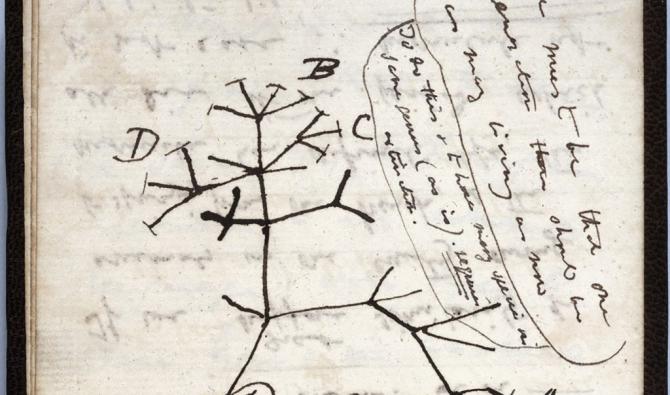 must be that one
then should be
as many living as now
To do this & to have many species in
same genus (as is). requires
extinction.
B
C
D